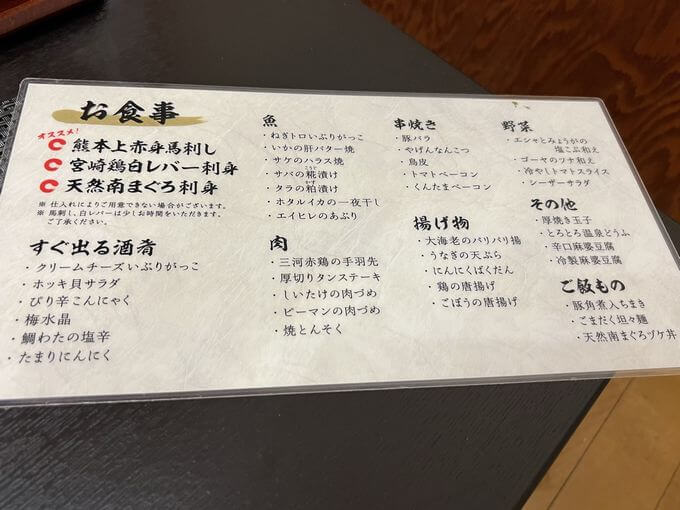 お食事
オススメ!
熊本上赤身馬刺し
宮崎鶏白レバー刺身
天然南まぐろ刺身
※ 仕入れによりご用意できない場合がございます。
※ 馬刺し、白レバーは少しお時間をいただきます。
ご了承ください。
すぐ出る酒肴
・クリームチーズいぶりがっこ
・ホッキ貝サラダ
・ぴり辛こんにゃく
・梅水晶
・鯛わたの塩辛
・たまりにんにく
魚
・ねぎトロいぶりがっこ
・いかの肝バター焼
・サケのハラス焼
・サバの糀漬け
・タラの粕漬け
・ホタルイカの一夜干し
・エイヒレのあぶり
肉
・三河赤鶏の手羽先
・厚切りタンステーキ
・しいたけの肉づめ
・ピーマンの肉づめ
・焼とんそく
串焼き
・豚バラ
・やげんなんこつ
・鳥皮
・トマトベーコン
・くんたまベーコン
揚げ物
・大海老のパリパリ揚
・うなぎの天ぷら
・にんにくばくだん
・鶏の唐揚げ
・ごぼうの唐揚げ
野菜
・エシャとみょうがの
塩こぶ和え
・ゴーヤのツナ和え
・冷やしトマトスライス
・シーザーサラダ
その他
・厚焼き玉子
・とろとろ温泉どうふ
・辛口麻婆豆腐
・冷製麻婆豆腐
ご飯もの
・豚角煮入ちまき
・ごまだく坦々麺
・天然南まぐろヅケ丼